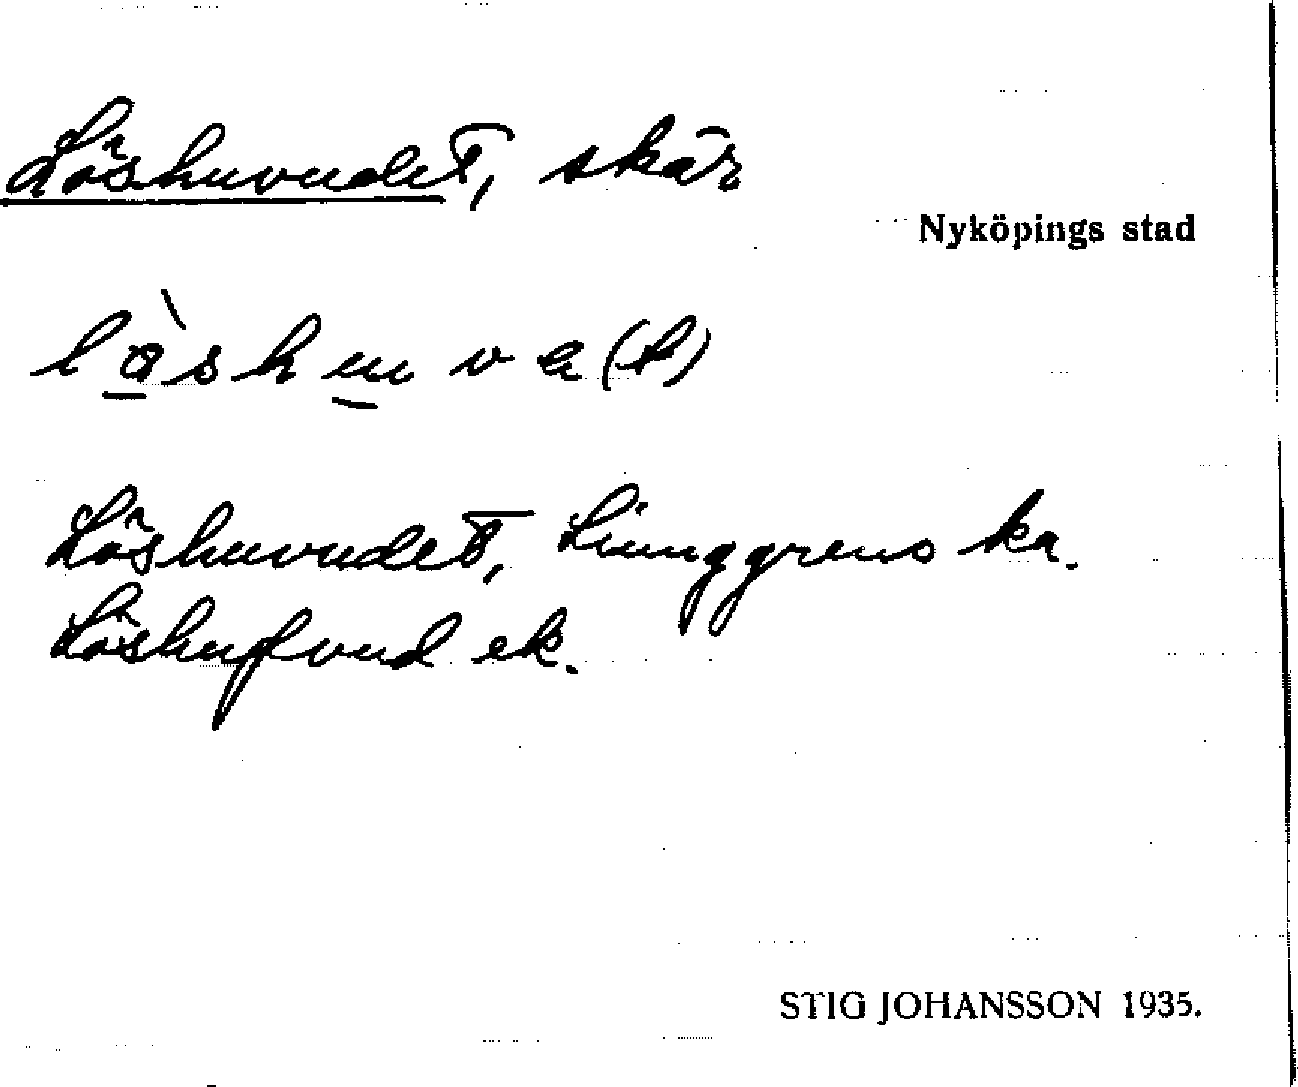 Löshuvudet, skär
Nyköpings stad
lòshuve(t)
Löshuvudet, Ljunggrens ka.
Löshufvud ek.
STIG JOHANSSON 1935.